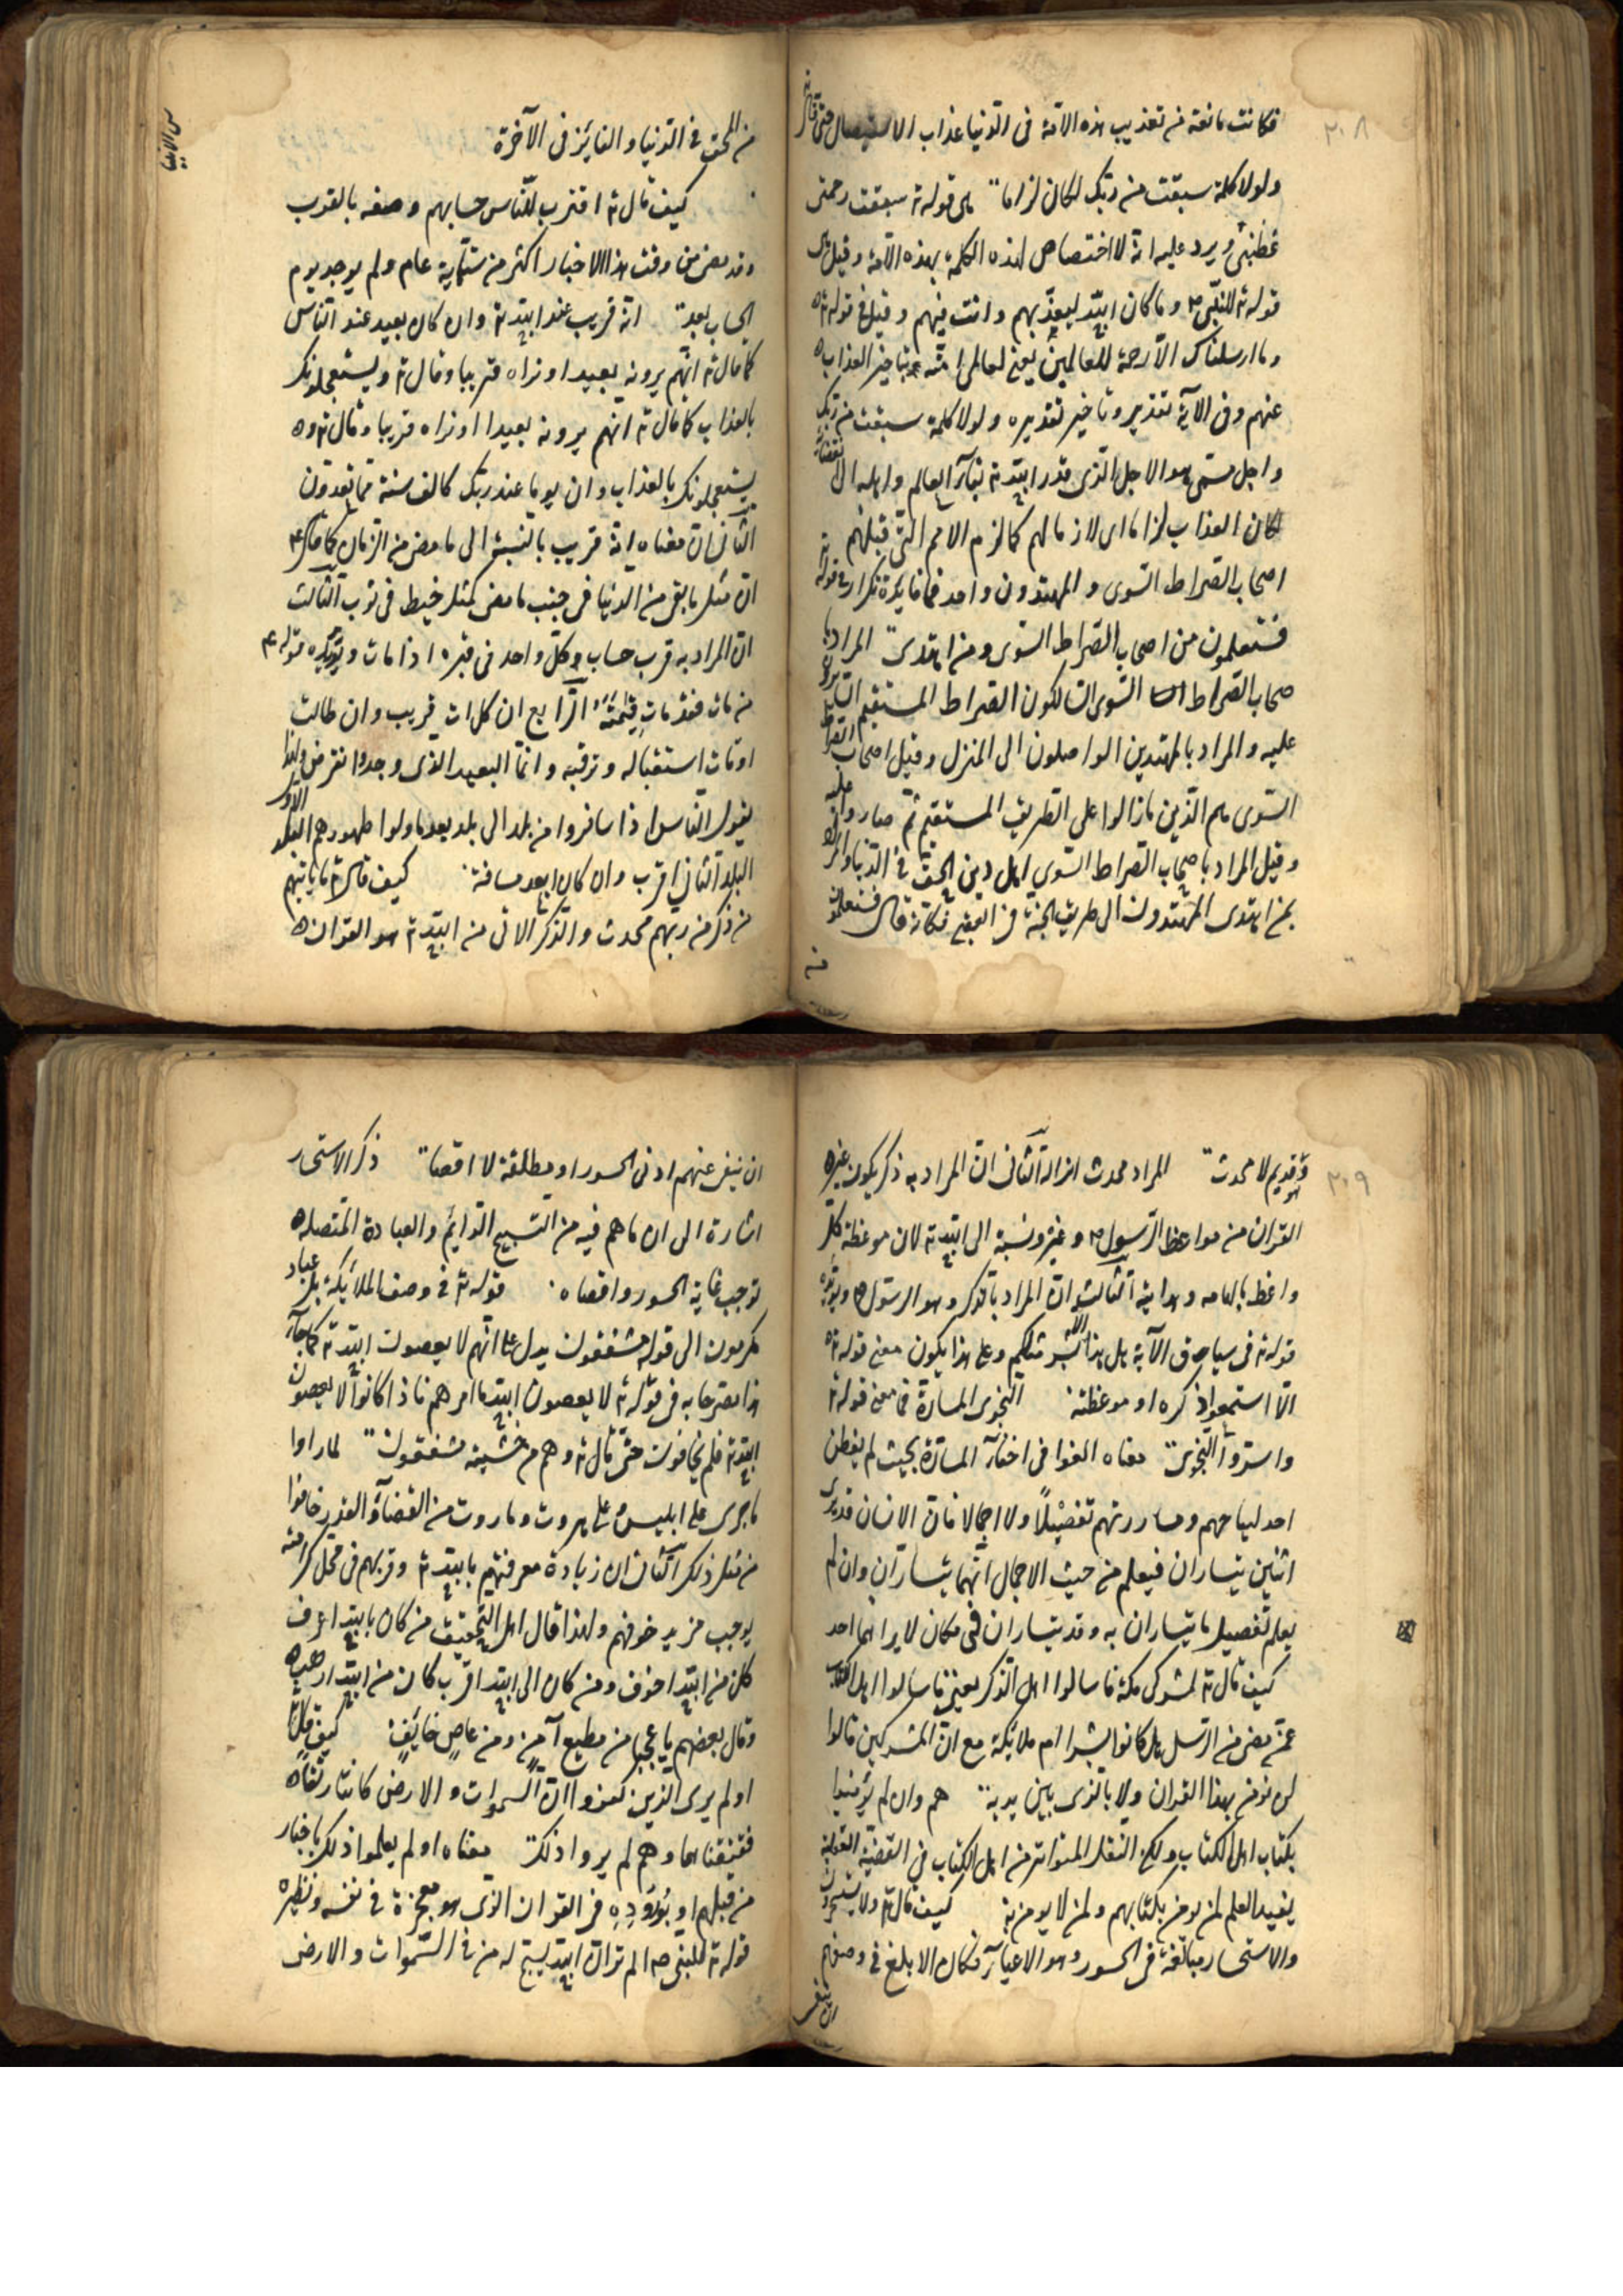 ٢٠٨
فكانت مانعة من تعذيب هذه الامة فى الدنيا عذاب الاستيصال حتى قال تع
ولولا كلمة سبقت من ربك لكان لزاما هى قوله تع سبقت رحمتى
غضبى ويرد عليه انه لا اختصاص لهذه الكلمة بهذه الامة وقيل هى
قوله تع للنبى ص وما كان الله ليعذبهم وانت فيهم وقيل فى قوله تع
وما ارسلناك الا رحمة للعالمين يعنى لعالمى امته بتاخير العذاب
عنهم وفى الآية تقديم وتاخير تقديره ولولا كلمة سبقت من ربك
واجل مسمى وهو الاجل الذى قدر الله تع بقآء العالم واهله الى انقضائه
لكان العذاب لزاما اى لازما لهم كما لزم الامم التى قبلهم
اصحاب الصراط السوى والمهتدون واحد فما فايدة تكرار فى قوله تع
فستعلمون من اصحاب الصراط السوى ومن اهتدى المراد با
صحاب الصراط السوى السالكون الصراط المستقيم السايرون
عليه والمراد بالمهتدين الواصلون الى المنزل وقيل اصحاب الصراط
السوى هم الذين مازالوا على الطريق المستقيم ثم صاروا عليه
وقيل المراد باصحاب الصراط السوي اهل دين الحق فى الدنيا والمراد
بمن اهتدى المهتدون الى طريق الجنة فى العقبى فكانه قال فستعلمون
من
س الانبيا
من المحق فى الدنيا والفايز فى الآخرة
كيف قال تع اقترب للناس حسابهم وصفه بالقرب
وقد مضى من وقت هذا الاخبار اكثر من ستماية عام ولم يوجد يوم
الحساب بعد انه قريب عند الله تع وان كان بعيد عند الناس
كما قال تع انهم يرونه بعيدا ونراه قريبا وقال تع ويستعجلونك
بالعذاب كما قال تع انهم يرونه بعيدا ونراه قريبا وقال تع و
يستعجلونك بالعذاب وان يوما عند ربك كالف سنة مما تعدون
الثانى ان معناه انه قريب بالنسبة الى ما مضى من الزمان كما قال ع
ان مثل ما بقى من الدنيا فى جنب ما مضى كمثل خيط فى ثوب الثالث
ان المراد به قرب حساب كل واحد فى قبره اذا مات ويؤيده قوله ع
من مات فقد مات قيامته الرابع ان كل ات قريب وان طالت
اوقات استقباله وترقبه وانما البعيد الذى وجد وانقرض ولهذا
يقول الناس اذا سافروا من بلد الى بلد بعد ما ولوا ظهورهم البلد الاول
البلد الثانى اقرب وان كان ابعد مسافة كيف قال تع ما ياتيهم
من ذكر من ربهم محدث والذكر الاتى من الله تع هو القرآن
٢٠٩
وهو قديم لا محدث المراد محدث انزاله الثانى ان المراد به ذكر يكون غير
القرآن من مواعظ الرسول ص وغيره ونسبة الى الله تع لان موعظة كل
واعظ بالهامه وهدايته الثالث ان المراد بالذكر وهو الرسول ص ويؤيده
قوله تع فى سياق الآية هل هذا الا بشر مثلكم وعلى هذا يكون معنى قوله تع
الا استمعوا ذكره او موعظته النجوى المسارة فما معنى قوله تع
واسروا النجوى معناه بالغوا فى اخفآء المسارة بحيث لم يفطن
احد لتناجيهم ومساررتهم تفصيلا ولا اجمالا فان الانسان قد يرى
اثنين يتساران فيعلم من حيث الاجمال انهما يتساران وان لم
يعلم تفصيل ما يتساران به وقد يتساران فى مكان لا يراهما احد
كيف قال تع لمشركى مكة فاسالوا اهل الذكر يعنى فاسالوا اهل الكتاب
عمن مضى من الرسل هل كانوا بشرا ام ملائكة مع ان المشركين قالوا
لن نؤمن بهذا القرآن ولا بالذى بين يديه هم وان لم يؤمنوا
بكتاب اهل الكتاب ولكن النقل المتواتر من اهل الكتاب فى القضية العقلية
يفيد العلم لمن يؤمن بكتابهم ولمن لا يؤمن به كيف قال تع ولا يستحسرون
والاستحسار مبالغة فى الحسور وهو الاعيآء فكان الابلغ فى وصفهم
ان ينفى
ان ينفى عنهم ادنى الحسور او مطلقه لا اقصاه ذكر الاستحسار
اشارة الى ان ما هم فيه من التسبيح الدايم والعبادة المتصلة
توجب غاية الحسور واقصاه قوله تع فى وصف الملائكة بل عباد
مكرمون الى قوله مشفقون يدل على انهم لا يعصون الله تع كما جآء
هذا مصرحا به فى قوله تع لا يعصون الله ما امرهم فاذا كانوا لا يعصون
الله تع فلم يخافون حتى قال تع وهم من خشيته مشفقون لما راوا
ما جرى على ابليس وعلى هروت وماروت من القضآء والقدر خافوا
من مثل ذلك الثانى ان زيادة معرفتهم بالله تع وقربهم فى محل كرامته
يوجب مزيد خوفهم ولهذا قال اهل التحقيق من كان بالله اعرف
كان من الله اخوف ومن كان الى الله اقرب كان من الله ارهب
وقال بعضهم يا عجبا من مطيع آمن ومن عاص خايف كيف قال تع
اولم يرى الذين كفروا ان السموات والارض كانتا رتقا
ففتقناهما وهم لم يروا ذلك معناه اولم يعلموا ذلك باخبار
من قبلهم او بوروده فى القرآن الذى هو معجزة فى نفسه ونظيره
قوله تع للنبى ص الم تر ان الله يسبح له من فى السموات والارض